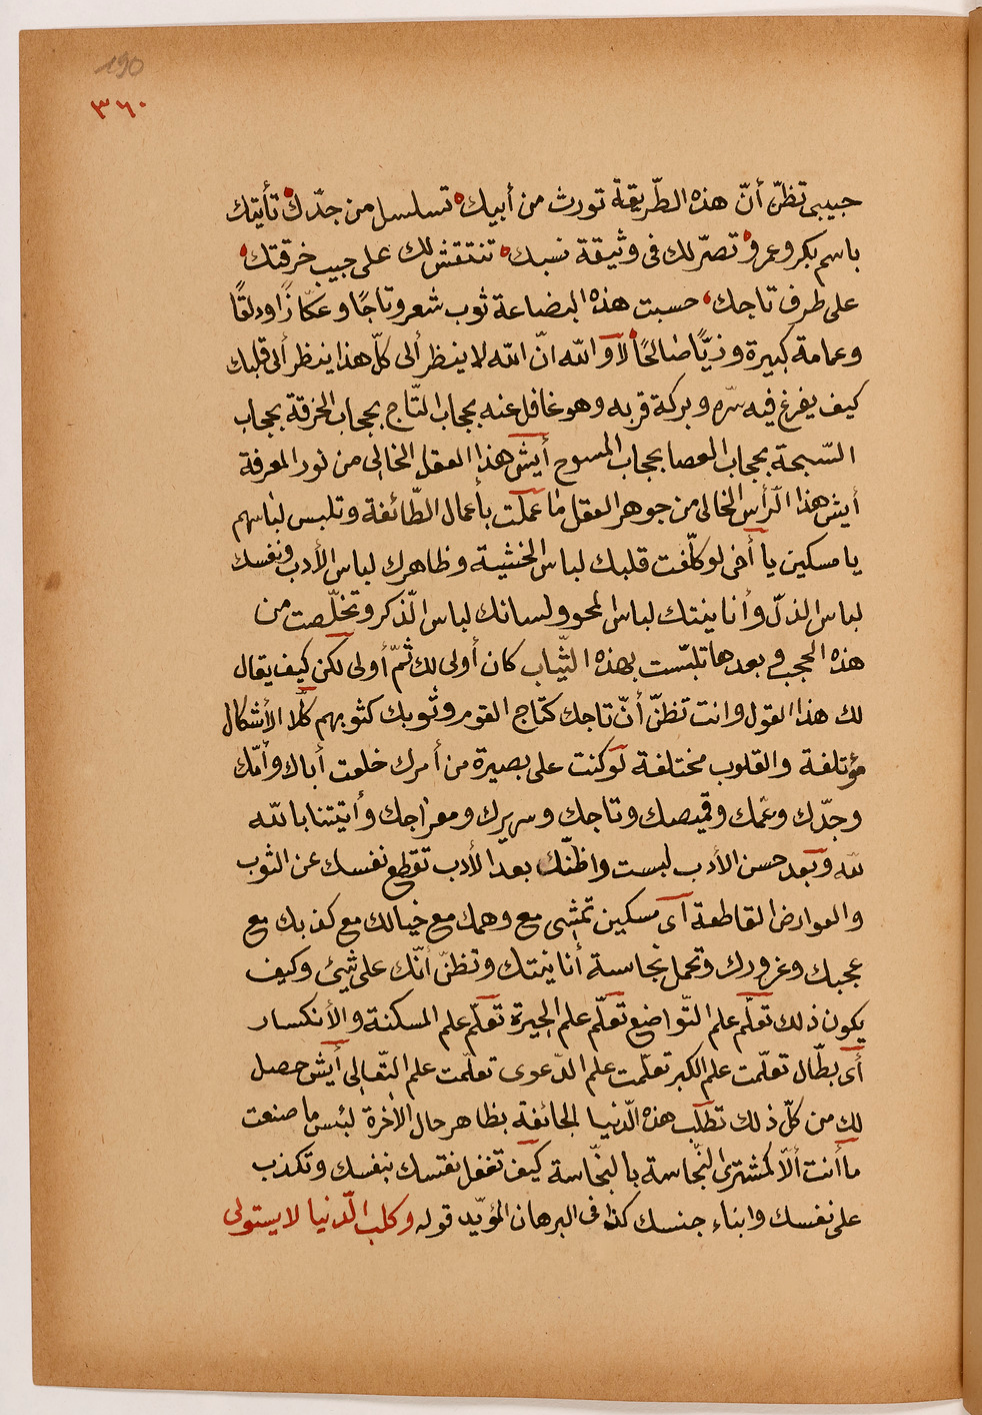 190
٣٦٠
حبيبى تظنّ أنّ هذه الطّريقة تورث من أبيك تسلسل من جدّك تأتيك
باسم بكر وعمرو تصرّ لك فى وثيقة نسبك تنتقش لك على جيب خرقتك
على طرف تاجك حسبت هذه البضاعة ثوب شعر وتاجًا وعكّازًا ودلقًا
وعمامة كبيرة وزيًّا صالحًا لا والله انّ الله لا ينظر ألى كلّ هذا ينظر ألى قلبك
كيف يفرغ فيه سرّه وبركة قربه وهو غافل عنه بحجاب التّاج بحجاب الخرقة بحجاب
السّبحة بحجاب العصا بحجاب المسوح أيش هذا العقل الخالى من نور المعرفة
أيش هذا الرّأس الخالى من جوهر العقل ما عملت بأعمال الطّائفة وتلبس لباسهم
يا مسكين يا أخى لو كلّفت قلبك لباس الخشية وظاهرك لباس الأدب ونفسك
لباس الذلّ وأنانيتك لباس المحو ولسانك لباس الذّكر وتخلّصت من
هذه الحجب وبعدها تلبّست بهذه الثّياب كان أولى لك ثمّ أولى لكن كيف يقال
لك هذا القول وانت تظنّ أنّ تاجك كتاج القوم وثوبك كثوبهم كلّا الأشكال
مؤتلفة والقلوب مختلفة لو كنت على بصيرة من أمرك خلعت أباك وأمّك
وجدّك وعمّك وقميصك وتاجك وسريرك ومعراجك وأتيتنا بالله
لله وبعد حسن الأدب لبست واظنّك بعد الأدب تقطع نفسك عن الثوب
والعوارض القاطعة أى مسكين تمشى مع وهمك مع خيالك مع كذبك مع
عجبك وغرورك وتحمل نجاسة أنانيتك وتظنّ أنّك على شيئ وكيف
يكون ذلك تعلّم علم التّواضع تعلّم علم الحيرة تعلّم علم المسكنة والأنكسار
أى بطّال تعلّمت علم الكبر تعلّمت علم الدّعوى تعلّمت علم التّعالى أيش حصل
لك من كلّ ذلك تطلب هذه الدّنيا الجائفة بظاهر حال الأخرة لبئس ما صنعت
ما أنت ألّا كمشترى النّجاسة بالنّجاسة كيف تغفل نفسك بنفسك وتكذب
على نفسك وابناء جنسك كذا فى البرهان المؤيّد قوله وكلب الدّنيا لا يستولى